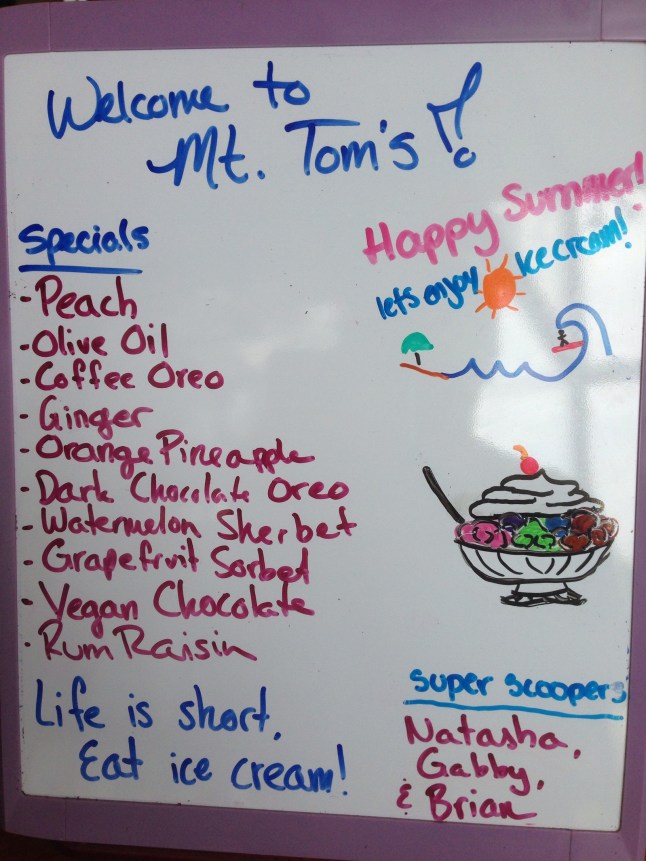 Welcome to
Mt. Tom's!
Happy Summer!
let's enjoy ice cream!
Specials
- Peach
- Olive Oil
- Coffee Oreo
- Ginger
- Orange Pineapple
- Dark Chocolate Oreo
- Watermelon Sherbet
- Grapefruit Sorbet
- Vegan Chocolate
- Rum Raisin
Life is short,
Eat ice cream!
Super Scoopers
Natasha,
Gabby,
& Brian